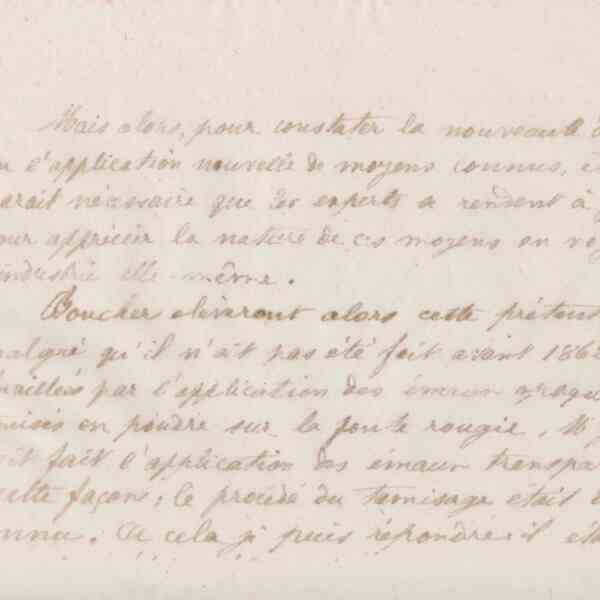 Mais alors, pour constater la nouveauté
l'application nouvelle de moyens connus,
arait nécessaire que les experts se rendent à
our apprécier la nature de ces moyens en
industrie elle-même.
Boucher élèveront alors cette prétent
malgré qu'il n'ait pas été fait avant 186
maillées par l'application des émaux opaqu
misés en poudre sur la fonte rougie, M
oit fait l'application des émaux transpa
cette façon; le procédé du tamisage était
onnu. A cela je puis répondre: il éta